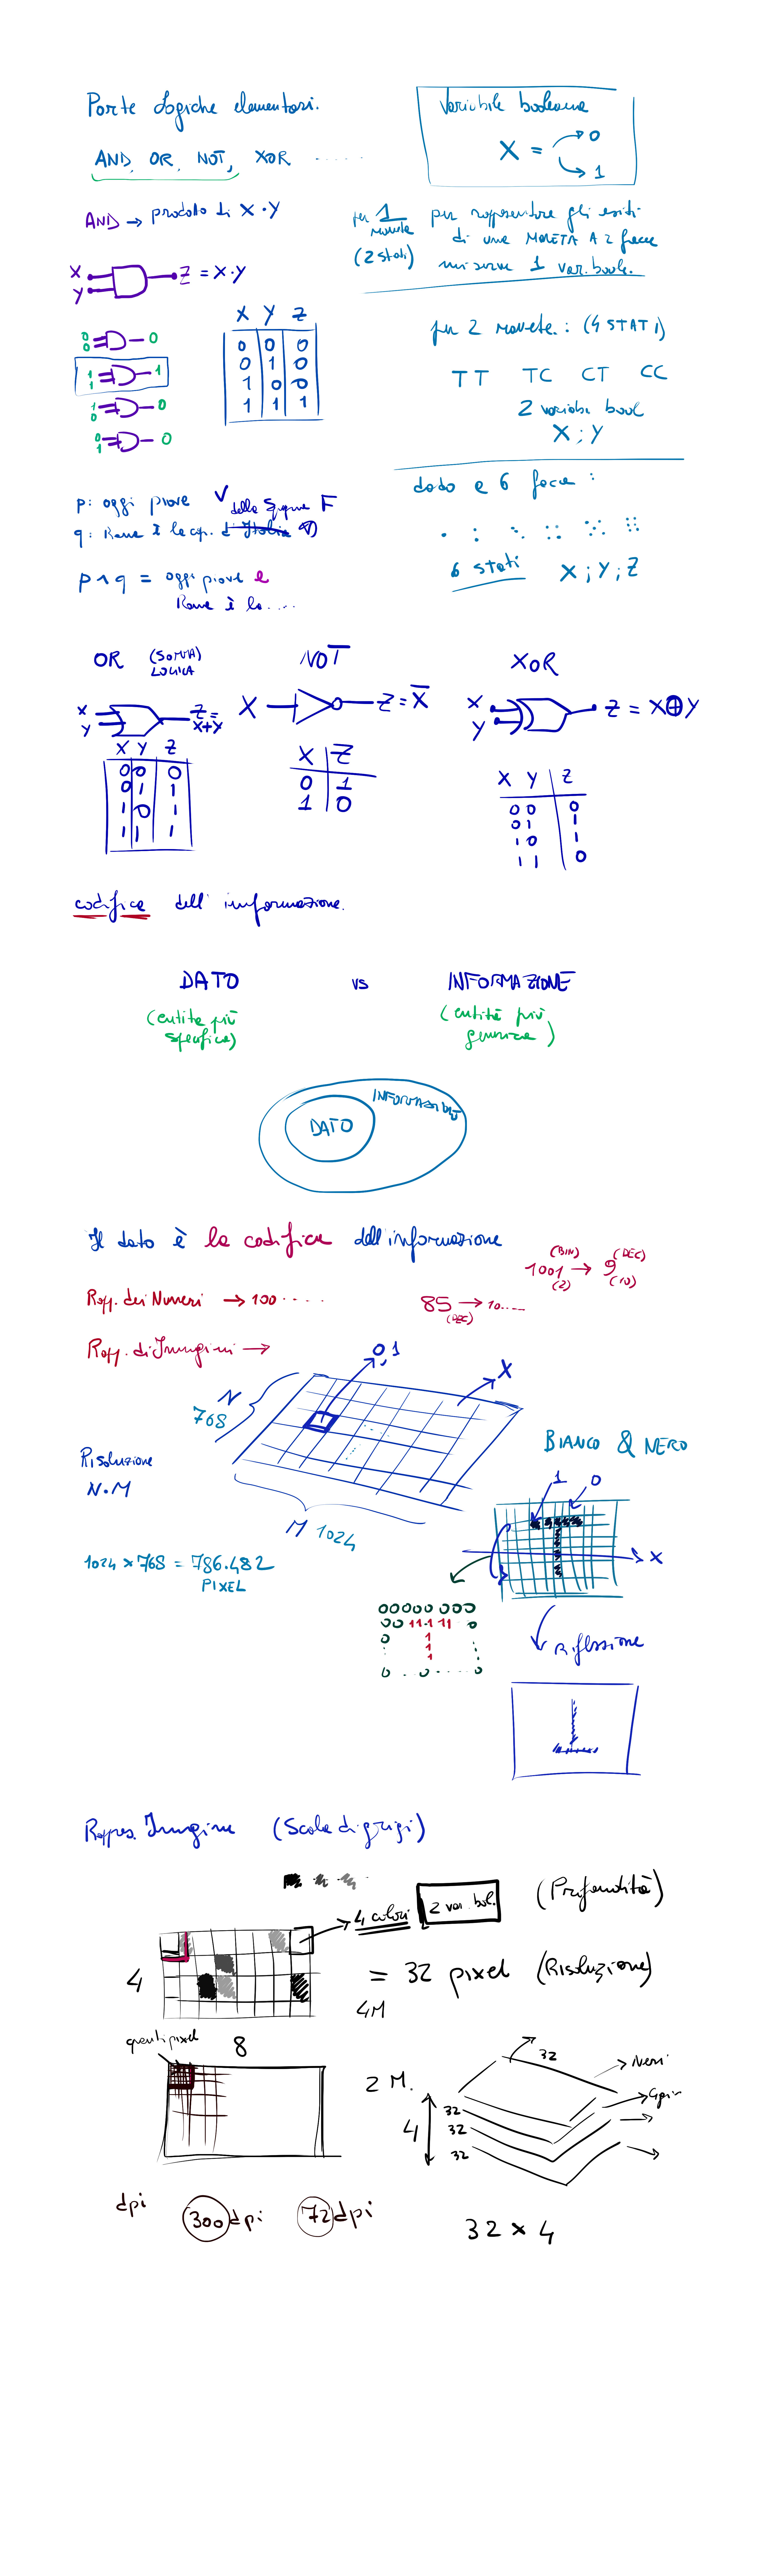 Porte Logiche elementari.
AND, OR, NOT, XOR ......
Variabile booleana
X = 0
1
AND → prodotto di X·Y
X
Y
Z = X·Y
0
0
0
1
1
1
1
0
0
0
1
0
X Y Z
0 0 0
0 1 0
1 0 0
1 1 1
per 1 moneta
(2 stati)
per rappresentare gli esiti
di una MONETA A 2 facce
mi serve 1 var. boole.
per 2 monete : (4 STATI)
TT TC CT CC
2 variabi bool
X ; Y
dado a 6 facce :
6 stati X ; Y ; Z
p: oggi piove V
q: Roma è la cap. d'Italia
della Spagna F
p ∧ q = oggi piove e
Roma è la ....
OR (SOMMA LOGICA)
X
Y
Z =
X+Y
X Y Z
0 0 0
0 1 1
1 0 1
1 1 1
NOT
X
Z = X̅
X Z
0 1
1 0
XOR
X
Y
Z = X⊕Y
X Y Z
0 0 0
0 1 1
1 0 1
1 1 0
codifica dell'informazione.
DATO vs INFORMAZIONE
(entità più
specifica)
(entità più
generica)
DATO
INFORMAZIONE
Il dato è la codifica dell'informazione
(BIN) (DEC)
1001 → 9
(2) (10)
Rapp. dei Numeri → 100 .....
85 → 10....
(DEC)
Rapp. di Immagini →
0,1
X
N
768
Risoluzione
N·M
M 1024
1024 × 768 = 786.482
PIXEL
BIANCO & NERO
1
0
X
00000 000
00 111 11 0
0 1
1
1
0 . . . 0 . . . . 0
Riflessione
Rappres. Immagine (Scala di grigi)
4 colori
2 var. bol.
(Profondità)
4
= 32 pixel (Risoluzione)
4M
8
quanti pixel
2 M.
4
32
32
32
32
Neri
Grigi
dpi
300 dpi
72 dpi
32 × 4